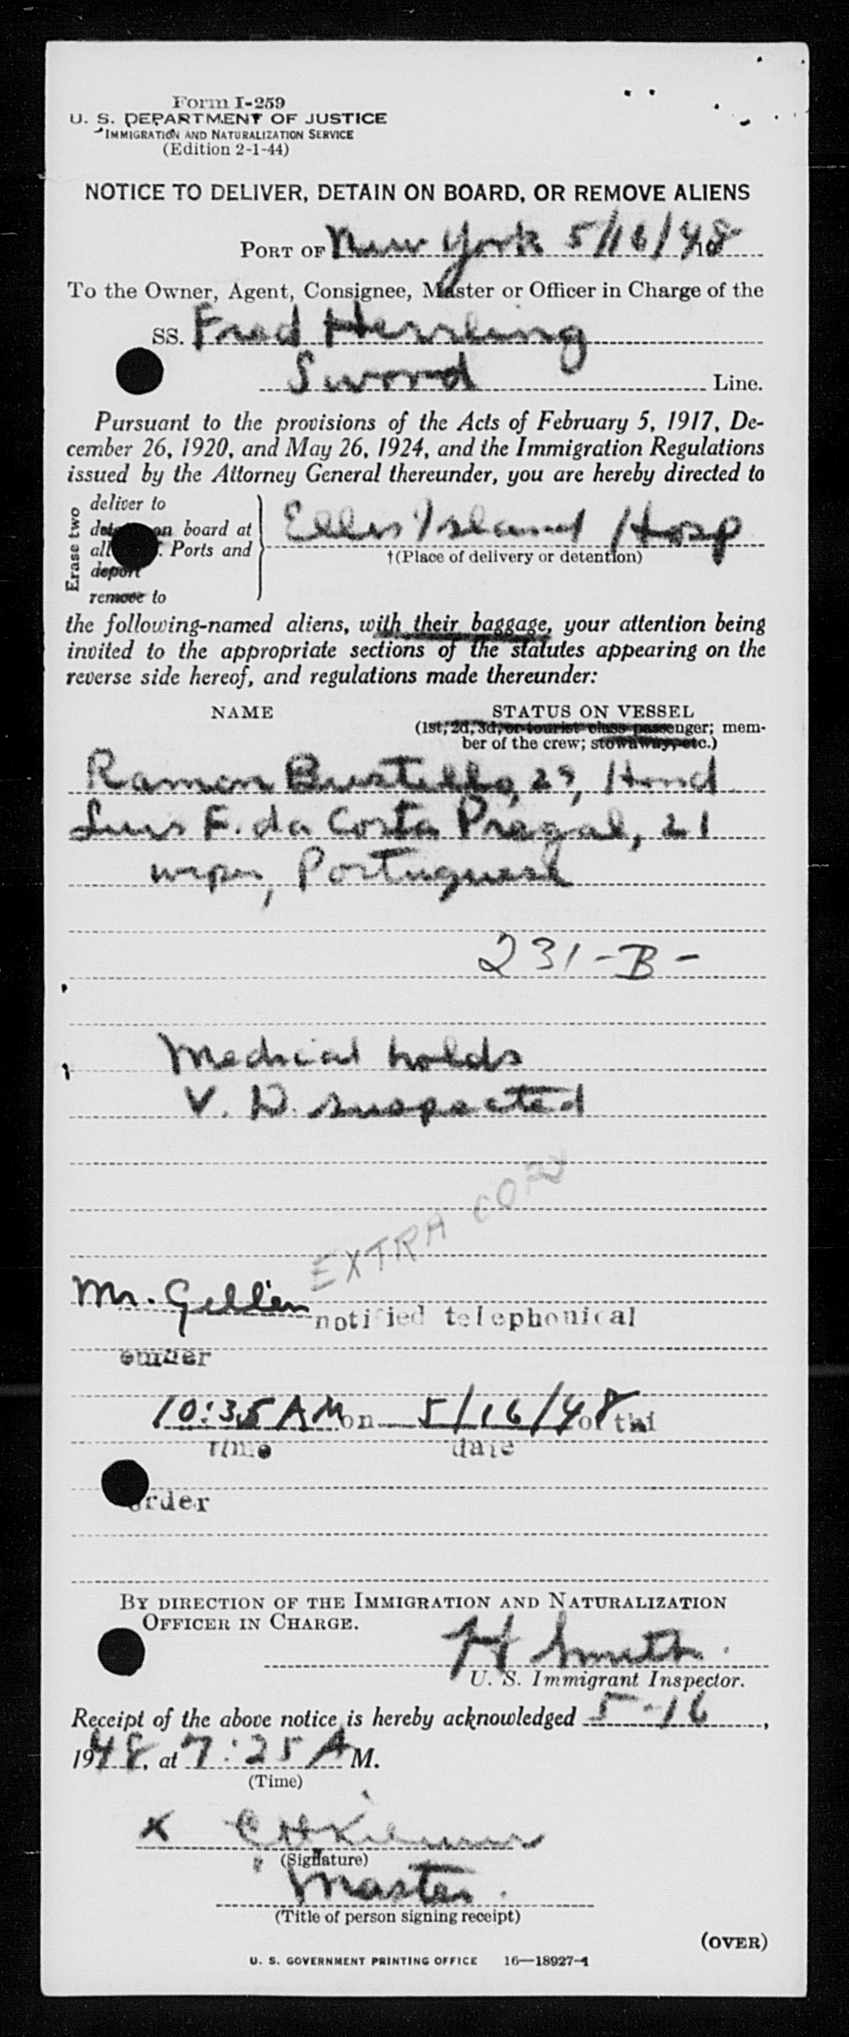 Form I-259
U. S. DEPARTMENT OF JUSTICE
IMMIGRATION AND NATURALIZATION SERVICE
(Edition 2-1-44)
NOTICE TO DELIVER, DETAIN ON BOARD, OR REMOVE ALIENS
PORT OF New York 5/16/48
To the Owner, Agent, Consignee, Master or Officer in Charge of the
SS. Fred Herrling
Sword Line.
Pursuant to the provisions of the Acts of February 5, 1917, De-
cember 26, 1920, and May 26, 1924, and the Immigration Regulations
issued by the Attorney General thereunder, you are hereby directed to
Erase two
deliver to
board at
Ports and
deport
remove to
Ellis Island Hosp
†(Place of delivery or detention)
the following-named aliens, with their baggage, your attention being
invited to the appropriate sections of the statutes appearing on the
reverse side hereof, and regulations made thereunder:
NAME STATUS ON VESSEL
(1st, 2d, 3d, or tourist class passenger; mem-
ber of the crew; stowaway, etc.)
Ramon Bustillo, 29, Hond
Luis F. da Costa Pregal, 21
wiper, Portuguese
231-B-
Medical holds
V. D. suspected
EXTRA COPY
Mr. Gellen notified telephonical
10:35 AM on 5/16/48 of thi
time date
order
BY DIRECTION OF THE IMMIGRATION AND NATURALIZATION
OFFICER IN CHARGE.
H Smith.
U. S. Immigrant Inspector.
Receipt of the above notice is hereby acknowledged 5-16,
1948, at 7:25 A M.
(Time)
x
(Signature)
Master.
(Title of person signing receipt)
(OVER)
U. S. GOVERNMENT PRINTING OFFICE 16—18927-1